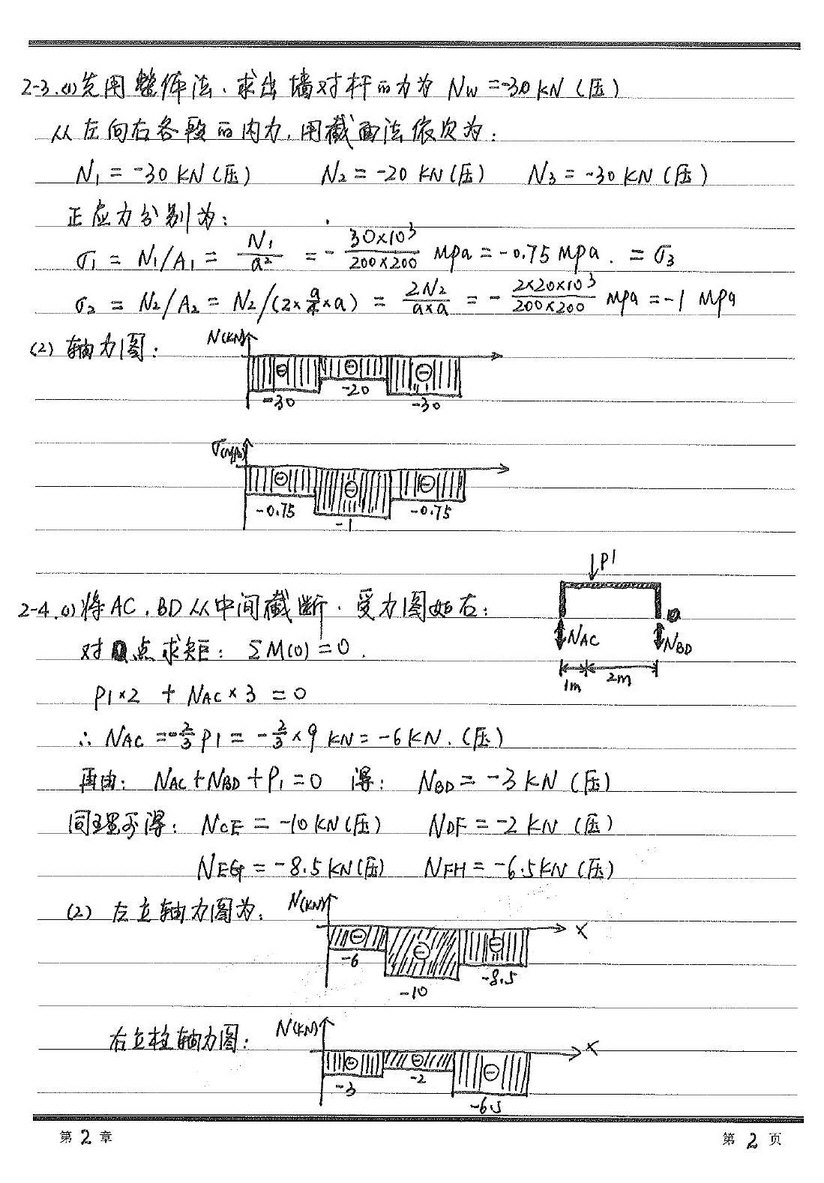 2-3.(1)先用整体法,求出墙对杆的力为 Nw=-30KN(压)
从左向右各段的内力,用截面法依次为:
N1=-30KN(压) N2=-20KN(压) N3=-30KN(压)
正应力分别为:
σ1 = N1/A1 = N1/a² = - 30×10³/200×200 Mpa = -0.75 Mpa. = σ3
σ2 = N2/A2 = N2/(2×a/4×a) = 2N2/a×a = - 2×20×10³/200×200 Mpa = -1 Mpa
(2) 轴力图: N(KN)
-30 -20 -30
σ(Mpa)
-0.75 -1 -0.75
P1
2-4.(1)将AC,BD从中间截断,受力图如右:
NAC NBD
1m 2m
对 点求矩: ΣM(O)=0.
P1×2 + NAC×3 = 0
∴ NAC =-2/3 P1 = -2/3×9 KN = -6KN.(压)
再由: NAC+NBD+P1=0 得: NBD = -3KN(压)
同理可得: NCE = -10KN(压) NDF = -2KN(压)
NEG = -8.5KN(压) NFH = -6.5KN(压)
(2) 左立轴力图为: N(KN) x
-6 -10 -8.5
右立柱轴力图: N(KN) x
-3 -2 -6.5
第2章 第2页